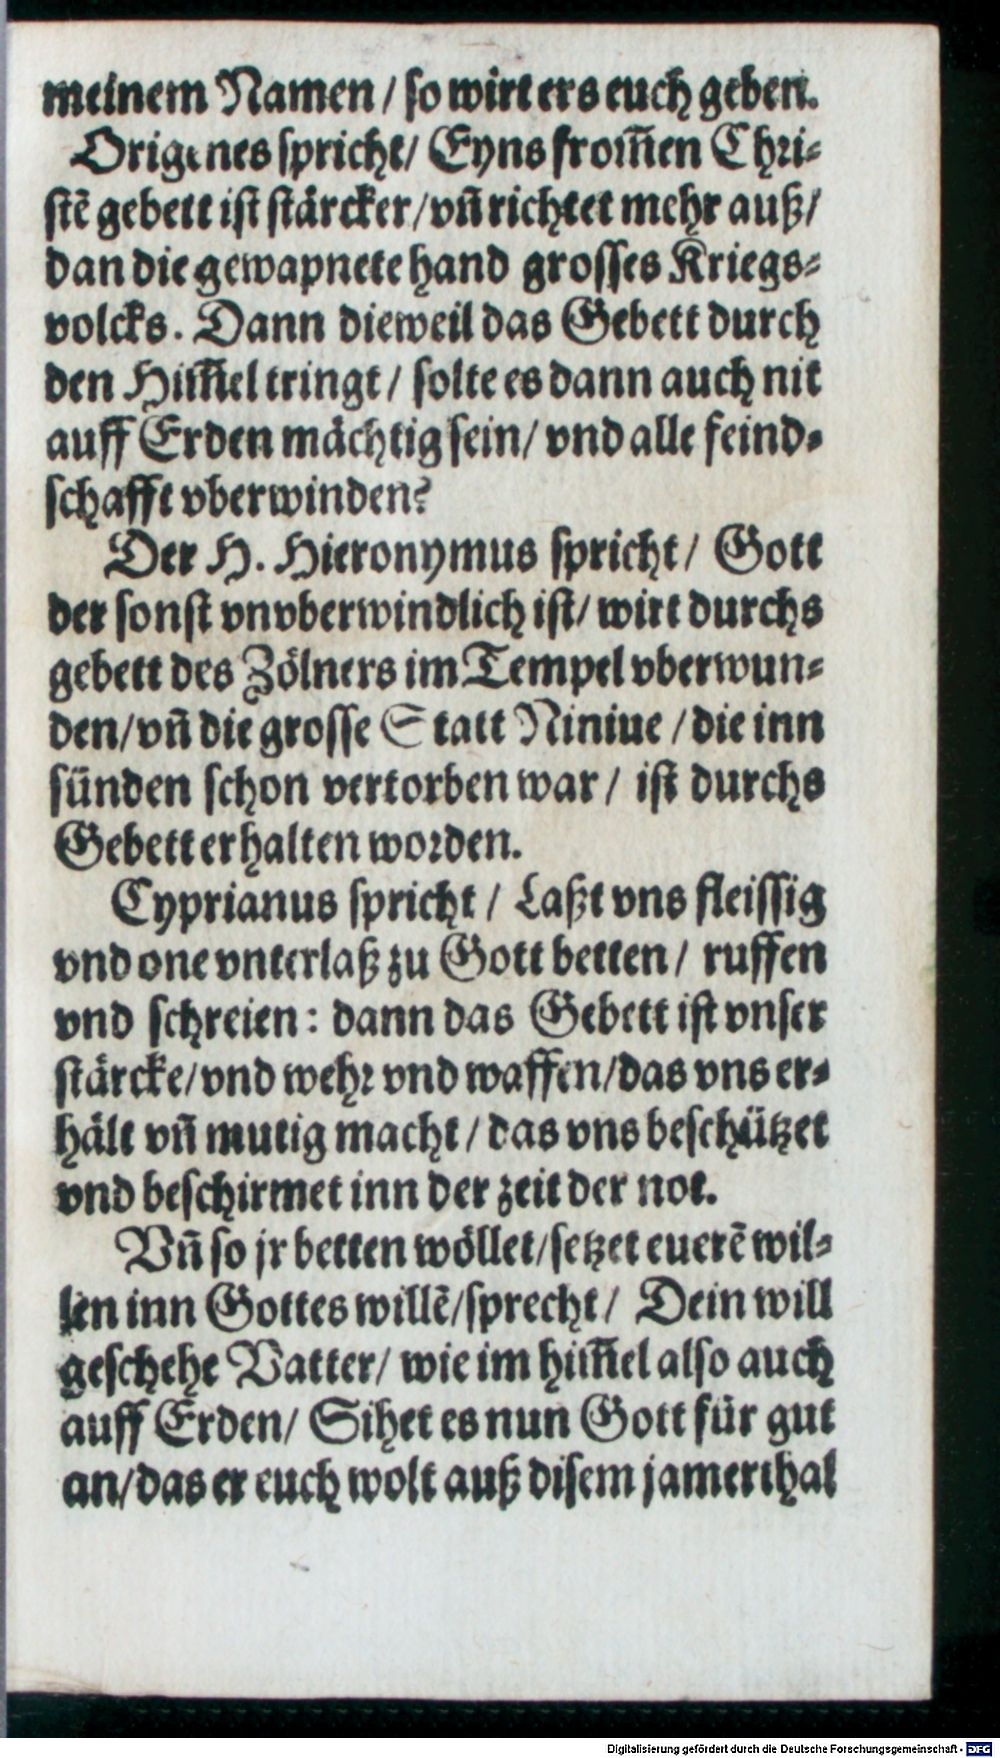 meinem Namen / so wirt ers euch geben.
Origenes spricht / Eyns from̃en Chri⸗
stẽ gebett ist stärcker / vñ richtet mehr auß /
dan die gewapnete hand grosses Kriegs⸗
volcks. Dann dieweil das Gebett durch
den Him̃el tringt / solte es dann auch nit
auff Erden mächtig sein / vnd alle feind⸗
schafft vberwinden?
Der H. Hieronymus spricht / Gott
der sonst vnvberwindlich ist / wirt durchs
gebett des Zölners im Tempel vberwun⸗
den / vñ die grosse Statt Niniue / die inn
sünden schon vertorben war / ist durchs
Gebett erhalten worden.
Cyprianus spricht / Laßt vns fleissig
vnd one vnterlaß zu Gott betten / ruffen
vnd schreien: dann das Gebett ist vnser
stärcke / vnd wehr vnd waffen / das vns er⸗
hält vñ mutig macht / das vns beschützet
vnd beschirmet inn der zeit der not.
Vñ so jr betten wöllet / setzet euerẽ wil⸗
len inn Gottes willẽ / sprecht / Dein will
geschehe Vatter / wie im him̃el also auch
auff Erden / Sihet es nun Gott für gut
an / das er euch wolt auß disem jamerthal
Digitalisierung gefördert durch die Deutsche Forschungsgemeinschaft - DFG